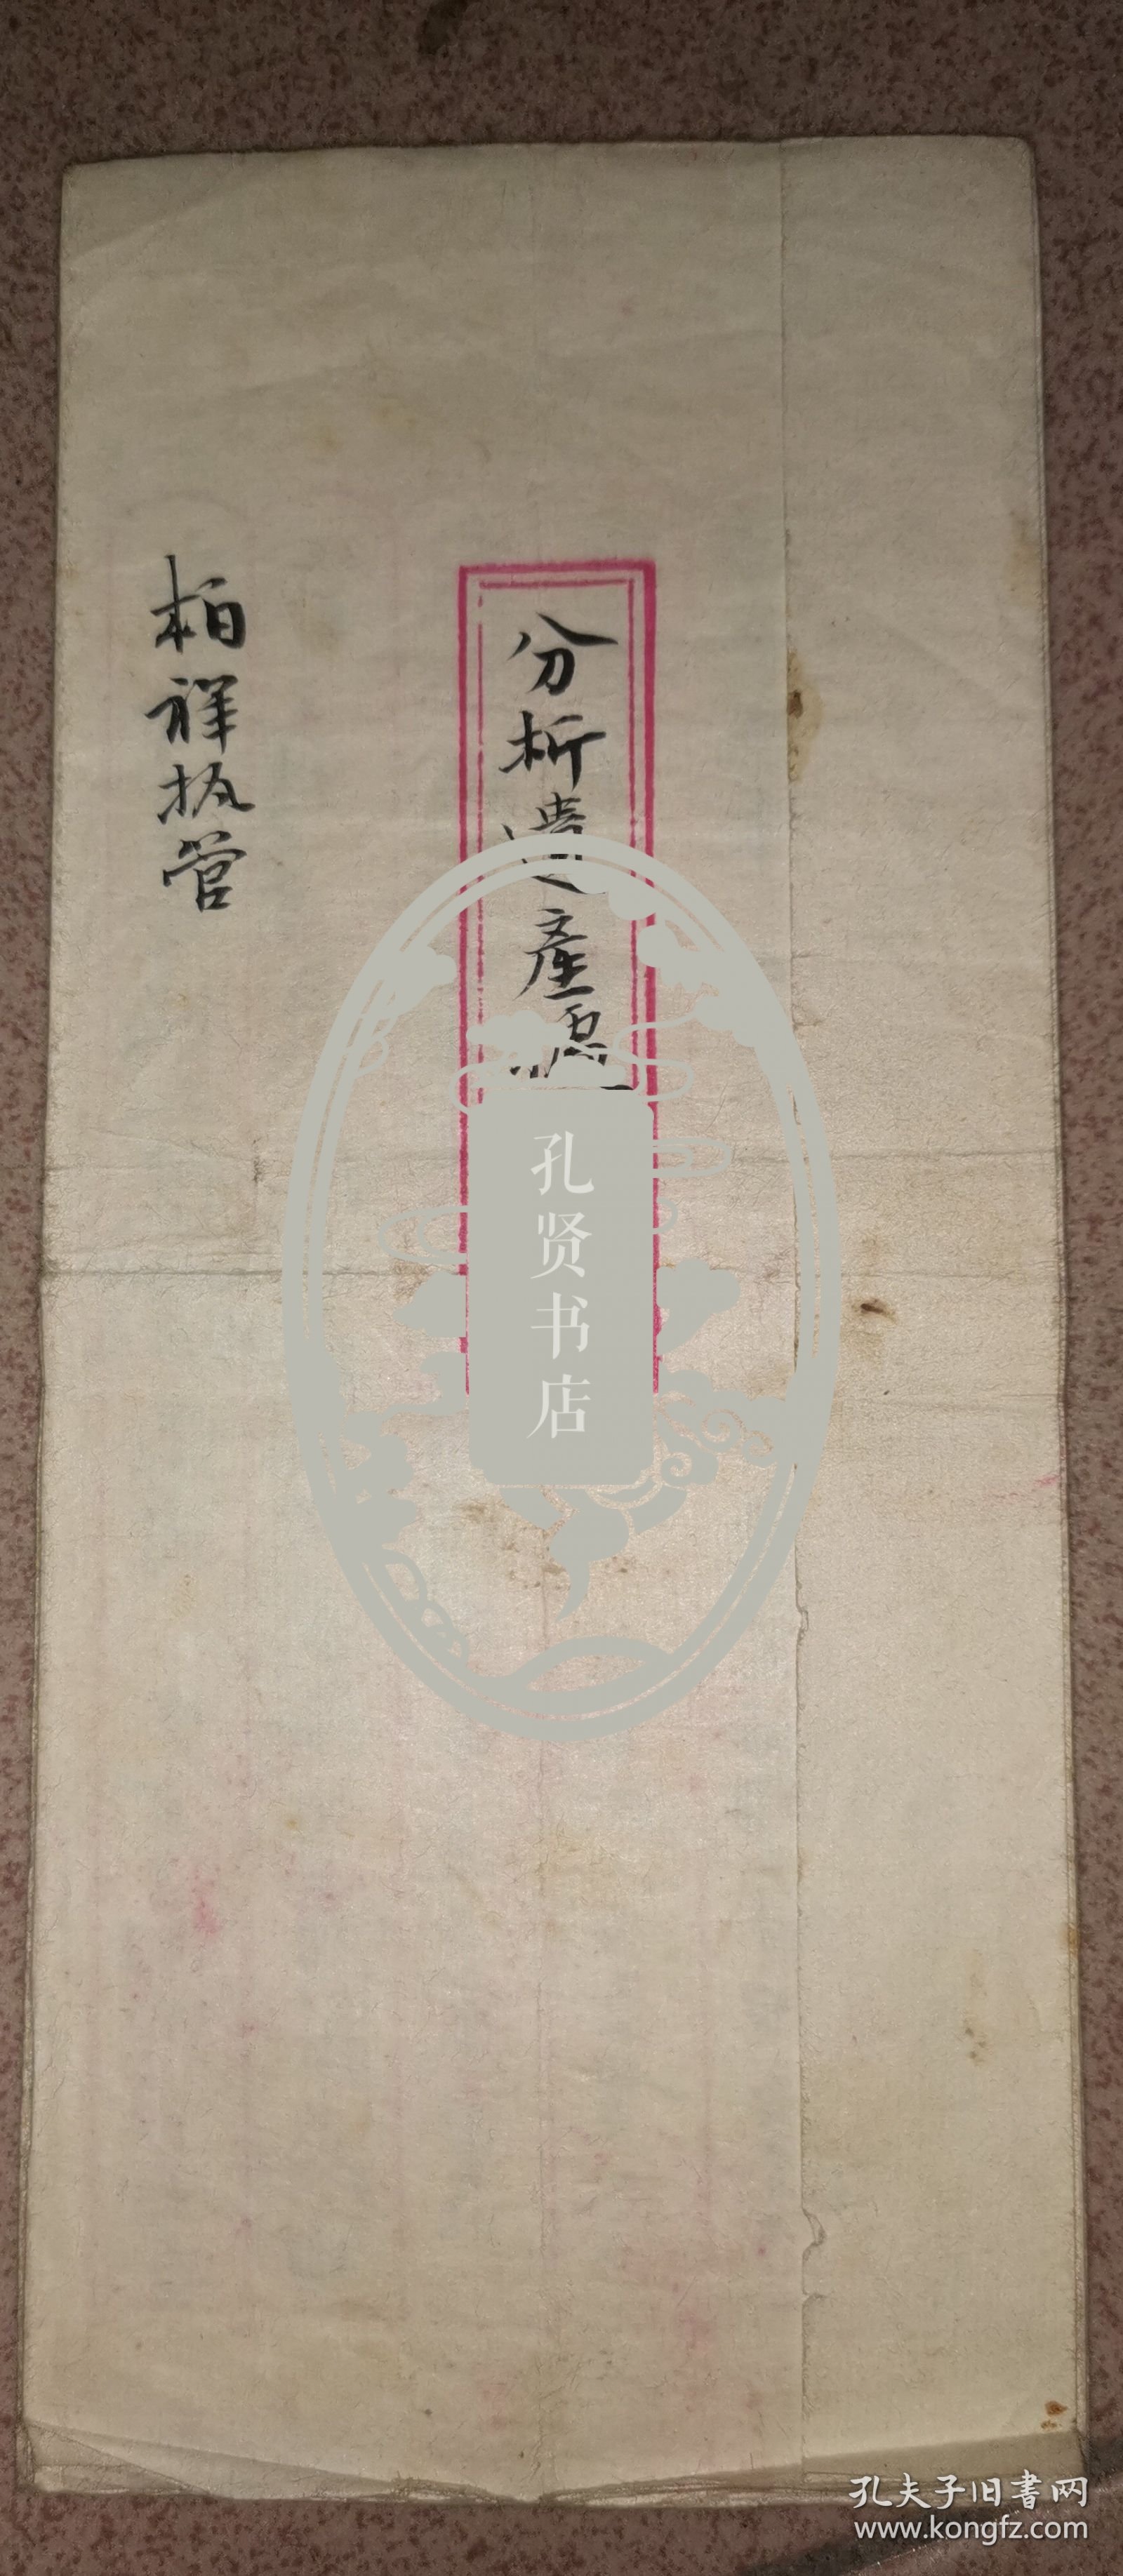 分析遺產
柏祥执管
孔贤书店
孔夫子旧書网
www.kongfz.com